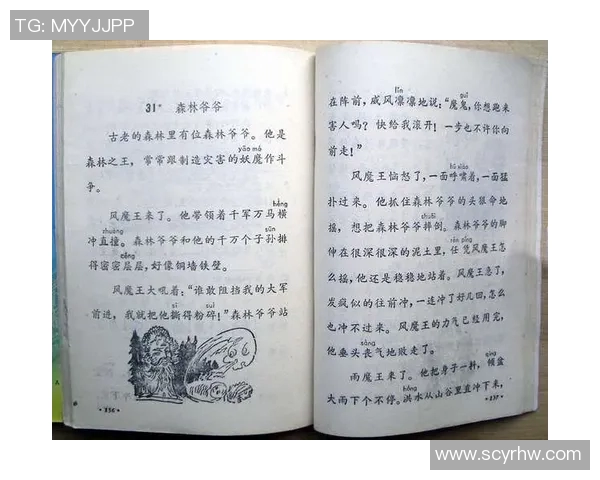 TG: MYYJJPP
31* 森林爷爷
古老的森林里有位森林爷爷。他是
yāo mó
森林之王，常常跟制造灾害的妖魔作斗
争。
héng
风魔王来了。他带领着千军万马横
zhuàng sūn
冲直撞。森林爷爷和他的千万个子孙排
céng
得密密层层，好像铜墙铁壁。
风魔王大吼着：“谁敢阻挡我的大军
sī suì
前进，我就把他撕得粉碎！”森林爷爷站
·136·
lǐn guǐ
在阵前，威风凛凛地说：“魔鬼，你想跑来
害人吗？快给我滚开！一步也不许你向
前走！”
hū xiào
风魔王恼怒了，一面呼啸着，一面猛
扑过来。他抓住森林爷爷的头狠命地
shuāi
摇，想把森林爷爷摔倒。森林爷爷的脚
rèn píng
伸在很深很深的泥土里，任凭风魔王怎
么摇，他还是稳稳地站着。风魔王急了，
发疯似的往前冲，一连冲了好几回，怎么
也冲不过来。风魔王的力气已经用完，
sàng
他垂头丧气地败走了。
qīng
雨魔王来了。他把身子一抖，倾盆
hóng
大雨下个不停。洪水从山谷里直冲下来，
·137·
www.scyrhw.com